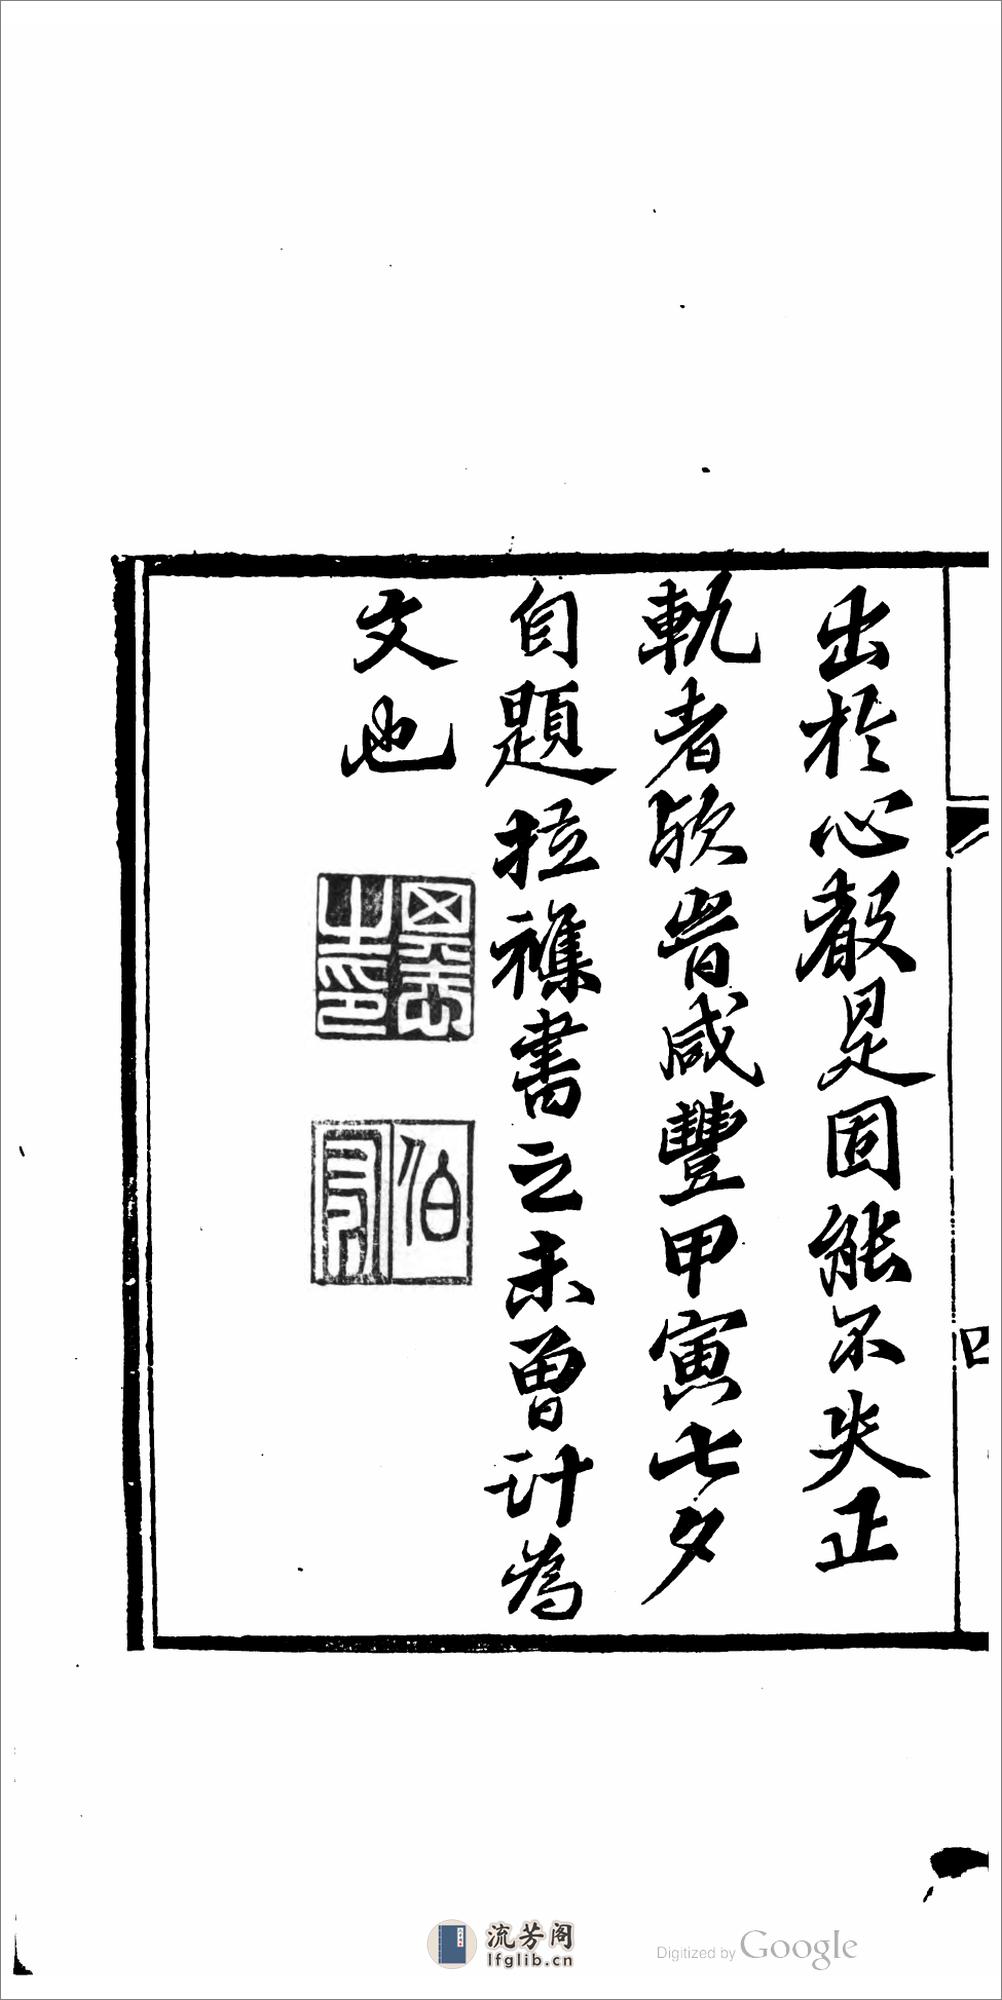 出於心聲是固能不失正
軌者歟峕咸豐甲寅七夕
自題拉襍書之未曾計為
文也
之印
伯
流芳阁
lfglib.cn
Digitized by Google